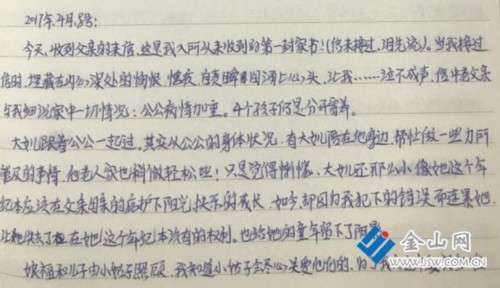 2017年4月8号:
今天,收到父亲的来信,这是我入所以来收到的第一封家书!(信未接过,泪先流)。当我接过
信时,埋藏在内心深处的愧疚、悔恨、自责瞬间涌上心头,让我……泣不成声,信中老父亲
与我细说家中一切情况:公公病情加重。4个孩子仍是分开寄养。
大女儿跟着公公一起过,其实从公公的身体状况,有大女儿陪在他身边,帮忙做一些力所
能及的事情,他老人家也稍微轻松些!只是觉得惭愧,大女儿还那么小,像她这个年
纪本应该在父亲母亲的庇护下阳光、快乐的成长,如今却因为我犯下的错误而连累她,
让她失去了在她这个年纪本该有的权利。也给她的童年留下了阴影
娘福和儿子由小姑子照顾,我知道小姑子会尽心关爱他们的,
金山网
WWW.JSW.COM.CN